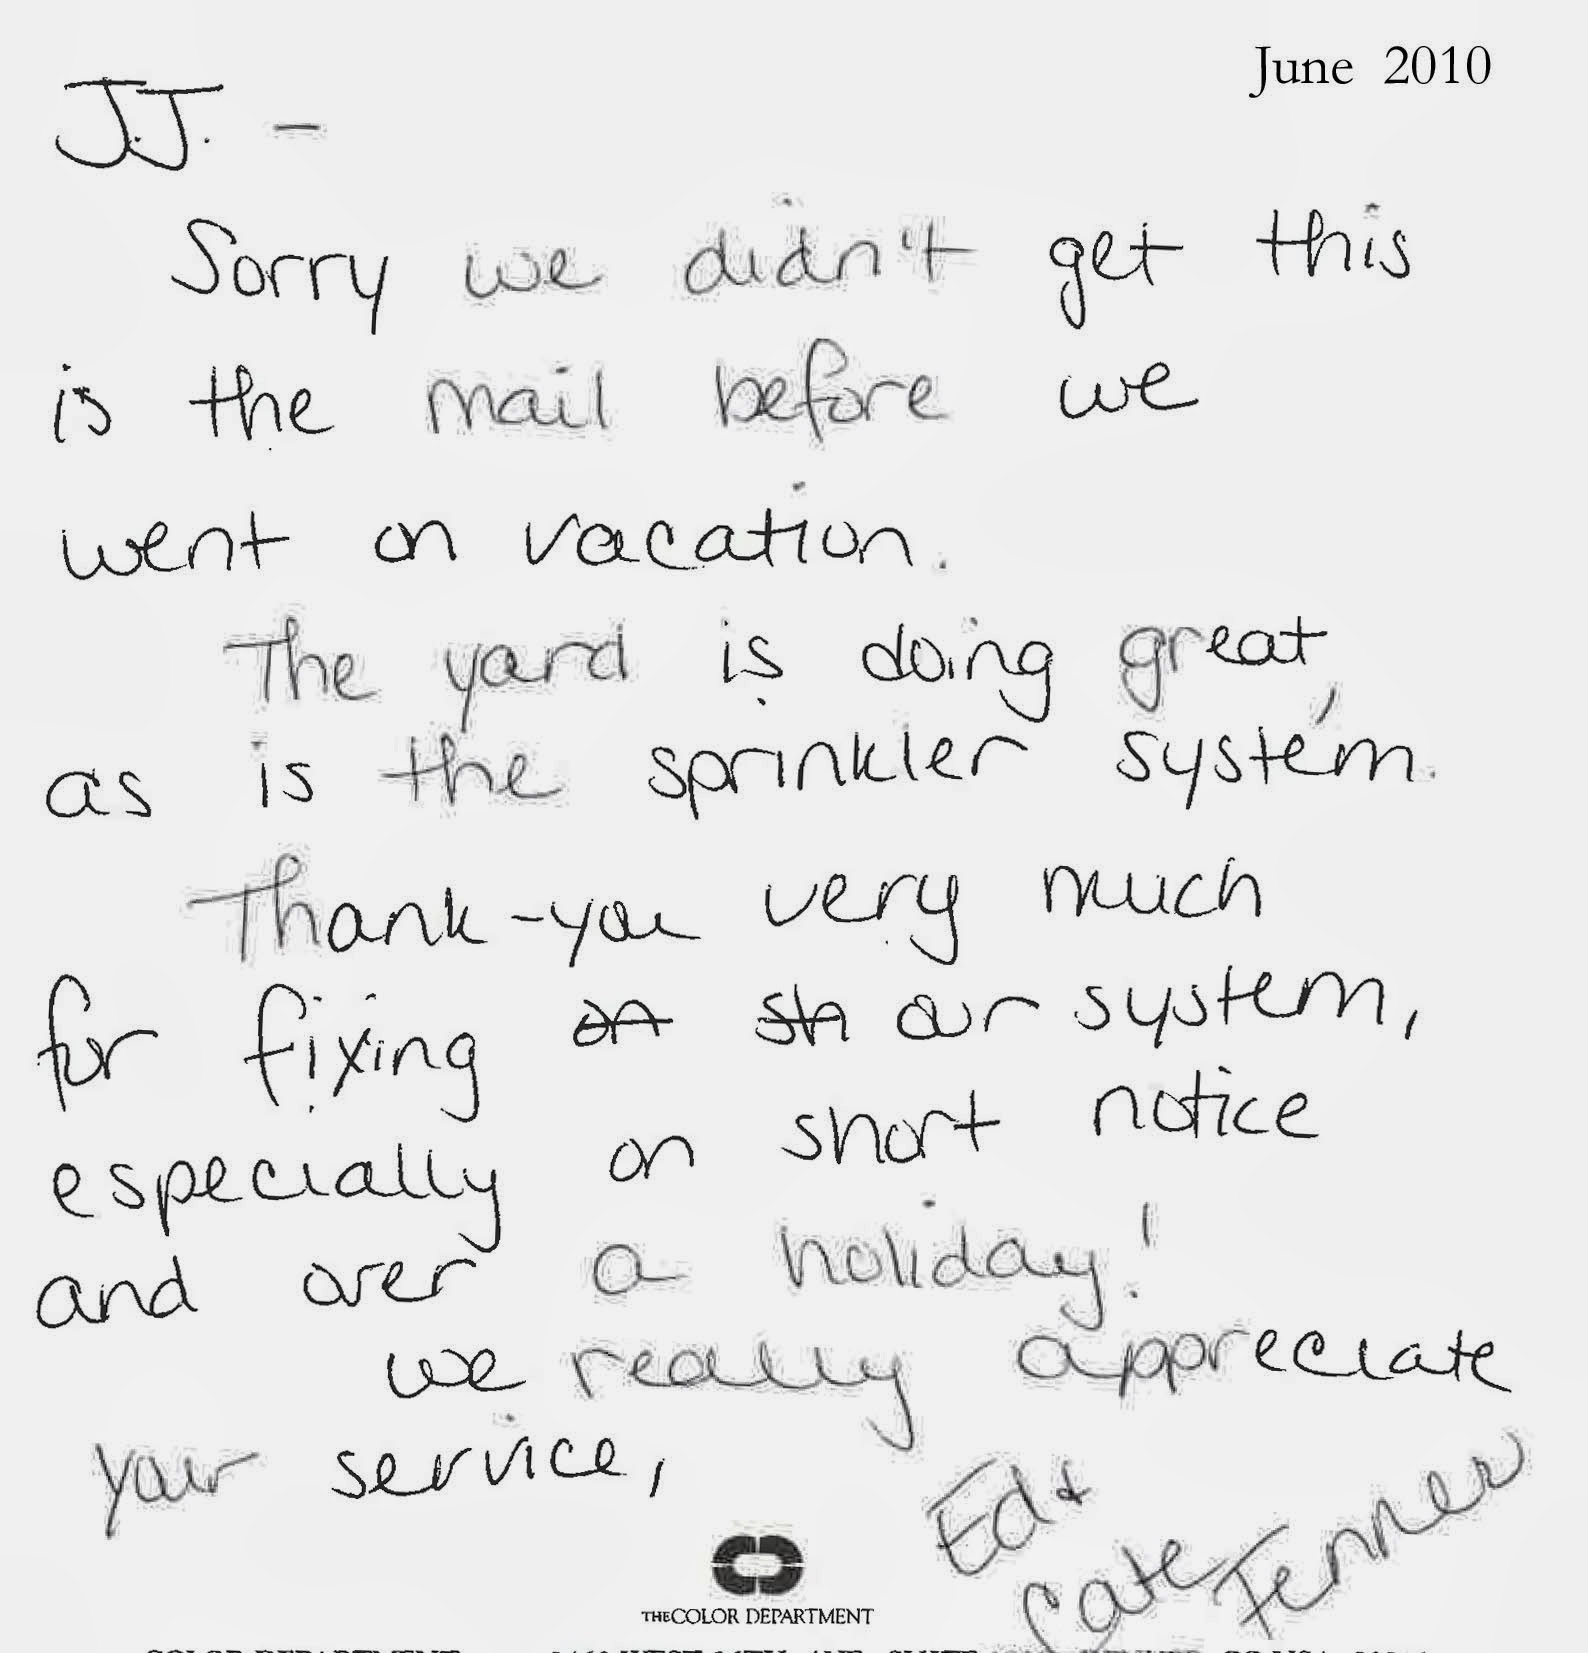 June 2010
J.J. -
Sorry we didn't get this
is the mail before we
went on vacation.
The yard is doing great,
as is the sprinkler system.
Thank-you very much
for fixing our system,
especially on short notice
and over a holiday!
we really appreciate
your service,
Ed &
Cate Fenner
THE COLOR DEPARTMENT